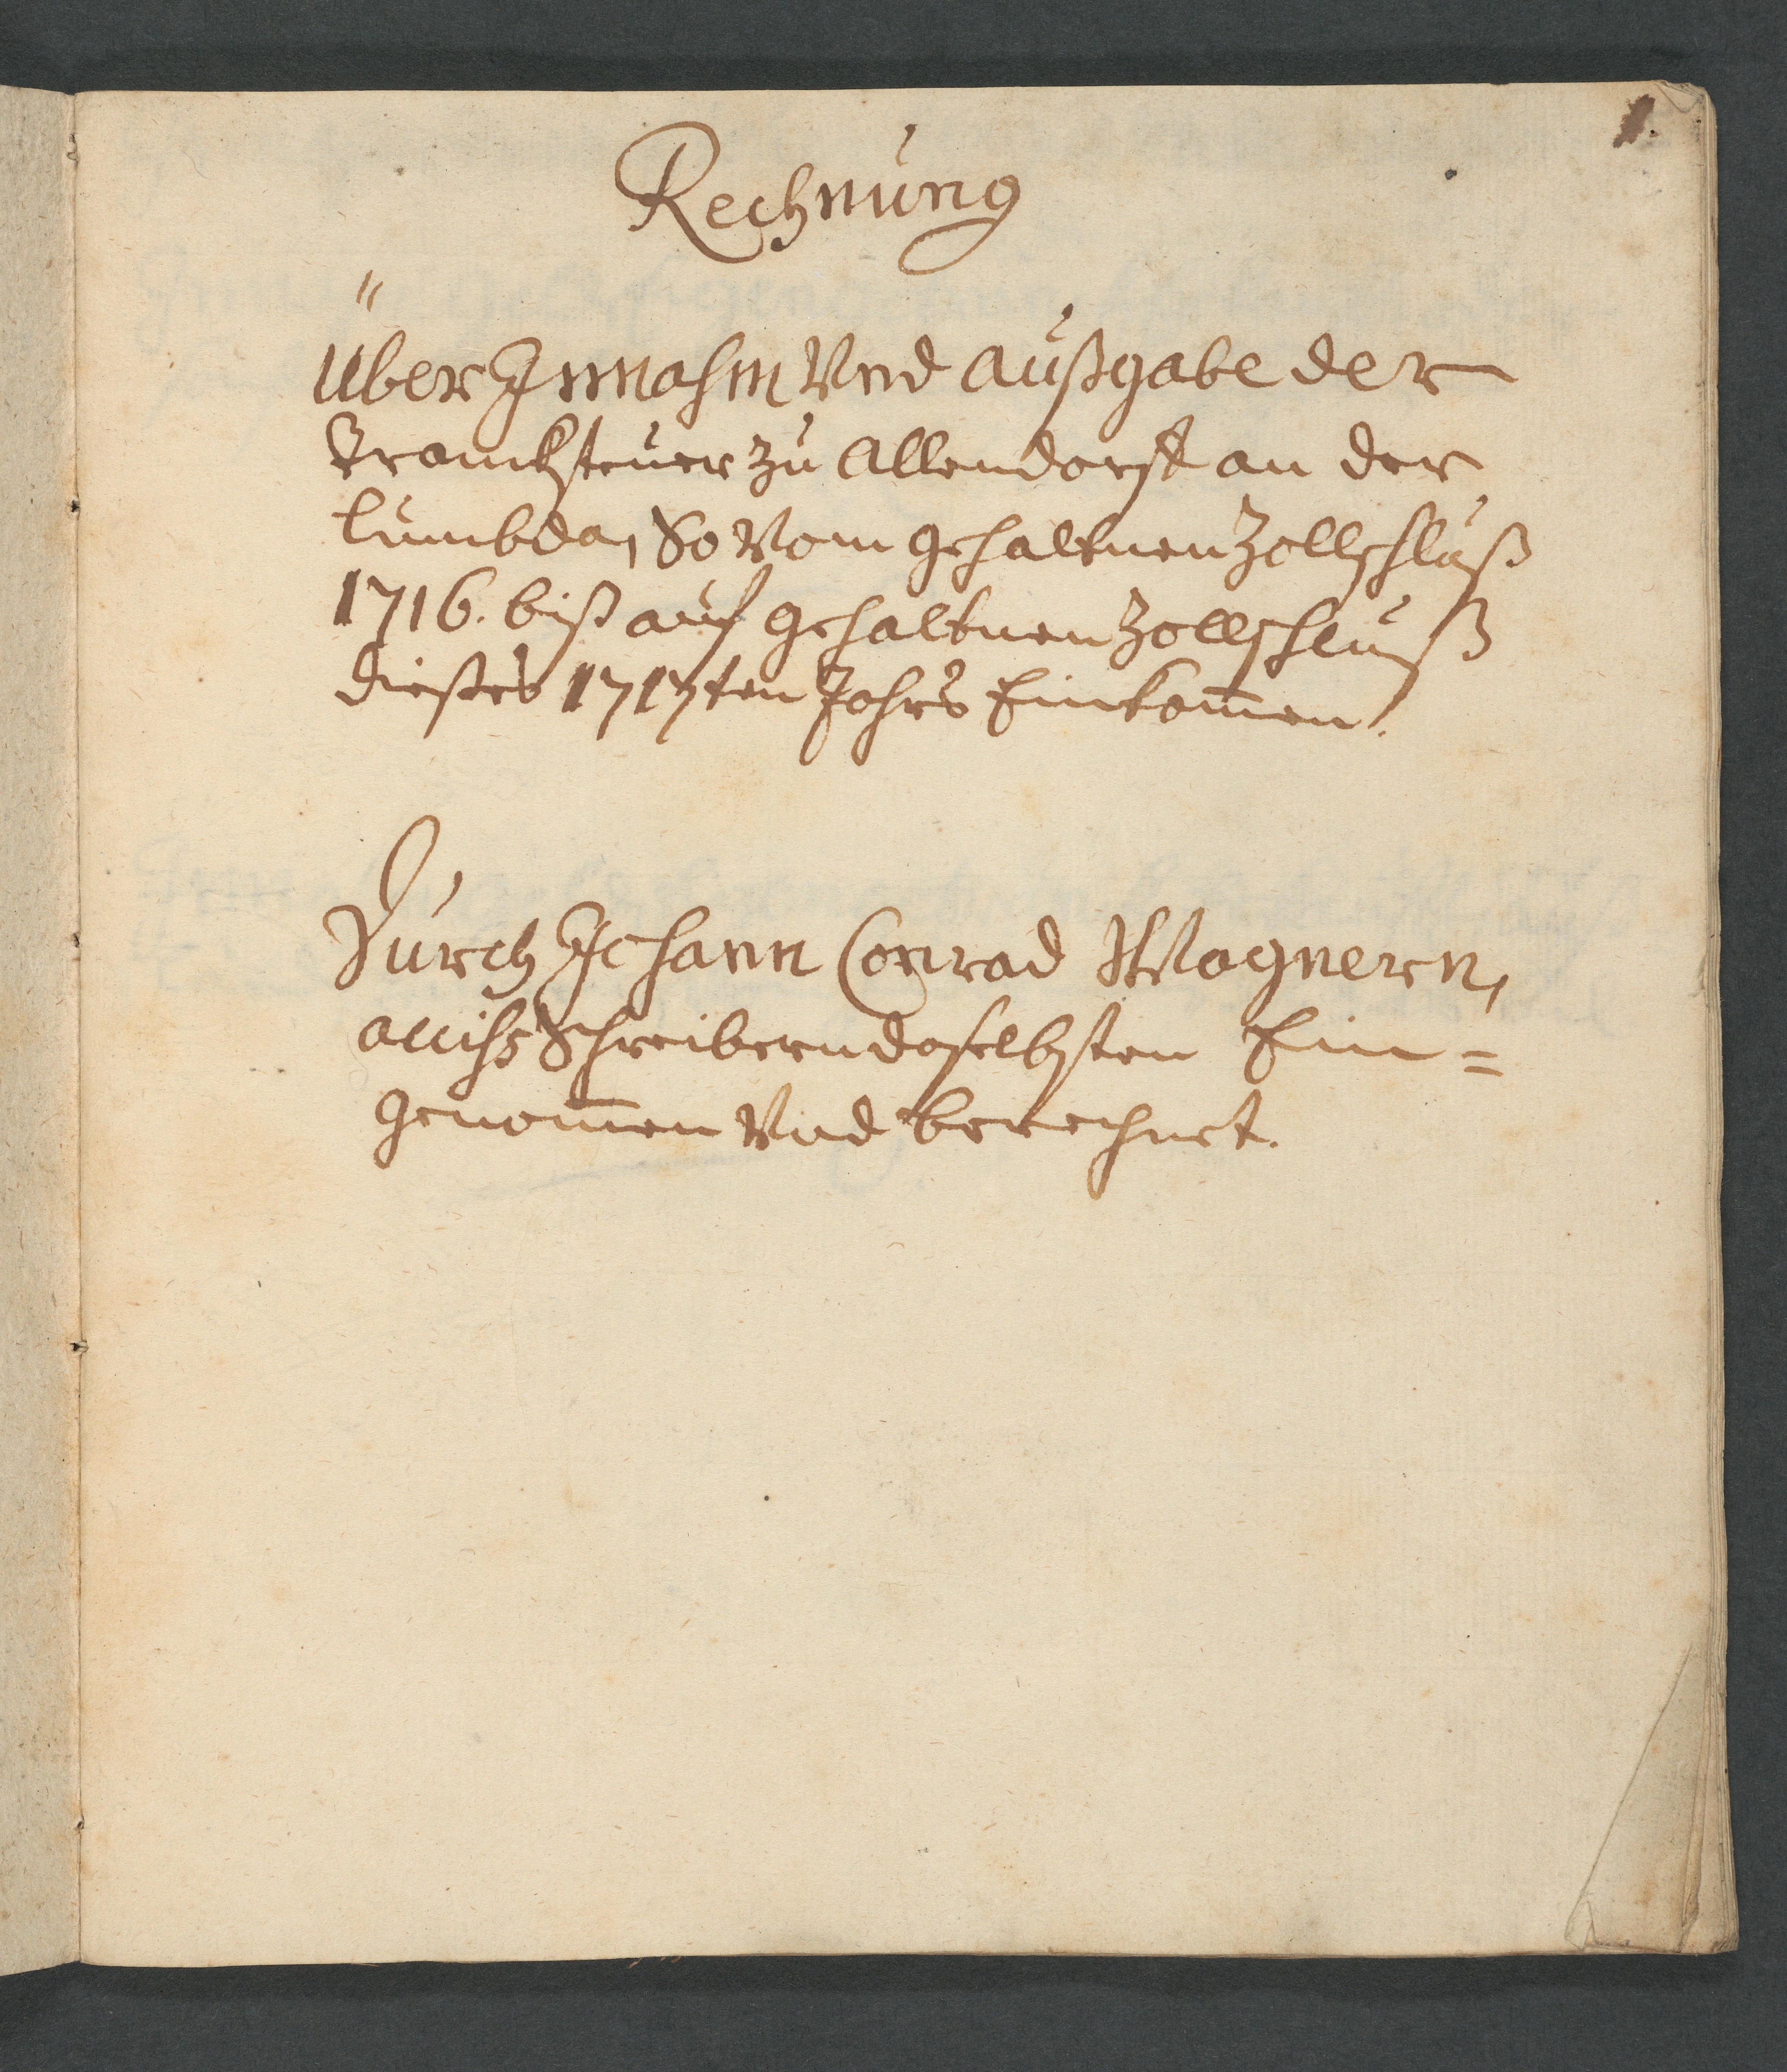 1.
Rechnung
Über Innahm Vnd Außgabe der
Trancksteuer zu Allendorff an der
Lumbda, So Vom gehaltnen Zollschluß
1716. biß auf gehaltnen Zollschluß
dießes 1717ten Jahrs Einkom̄en.
Durch Johann Conrad Wagnern,
acciß Schreibern daselbsten Ein=
genom̄en Vnd berechnet.